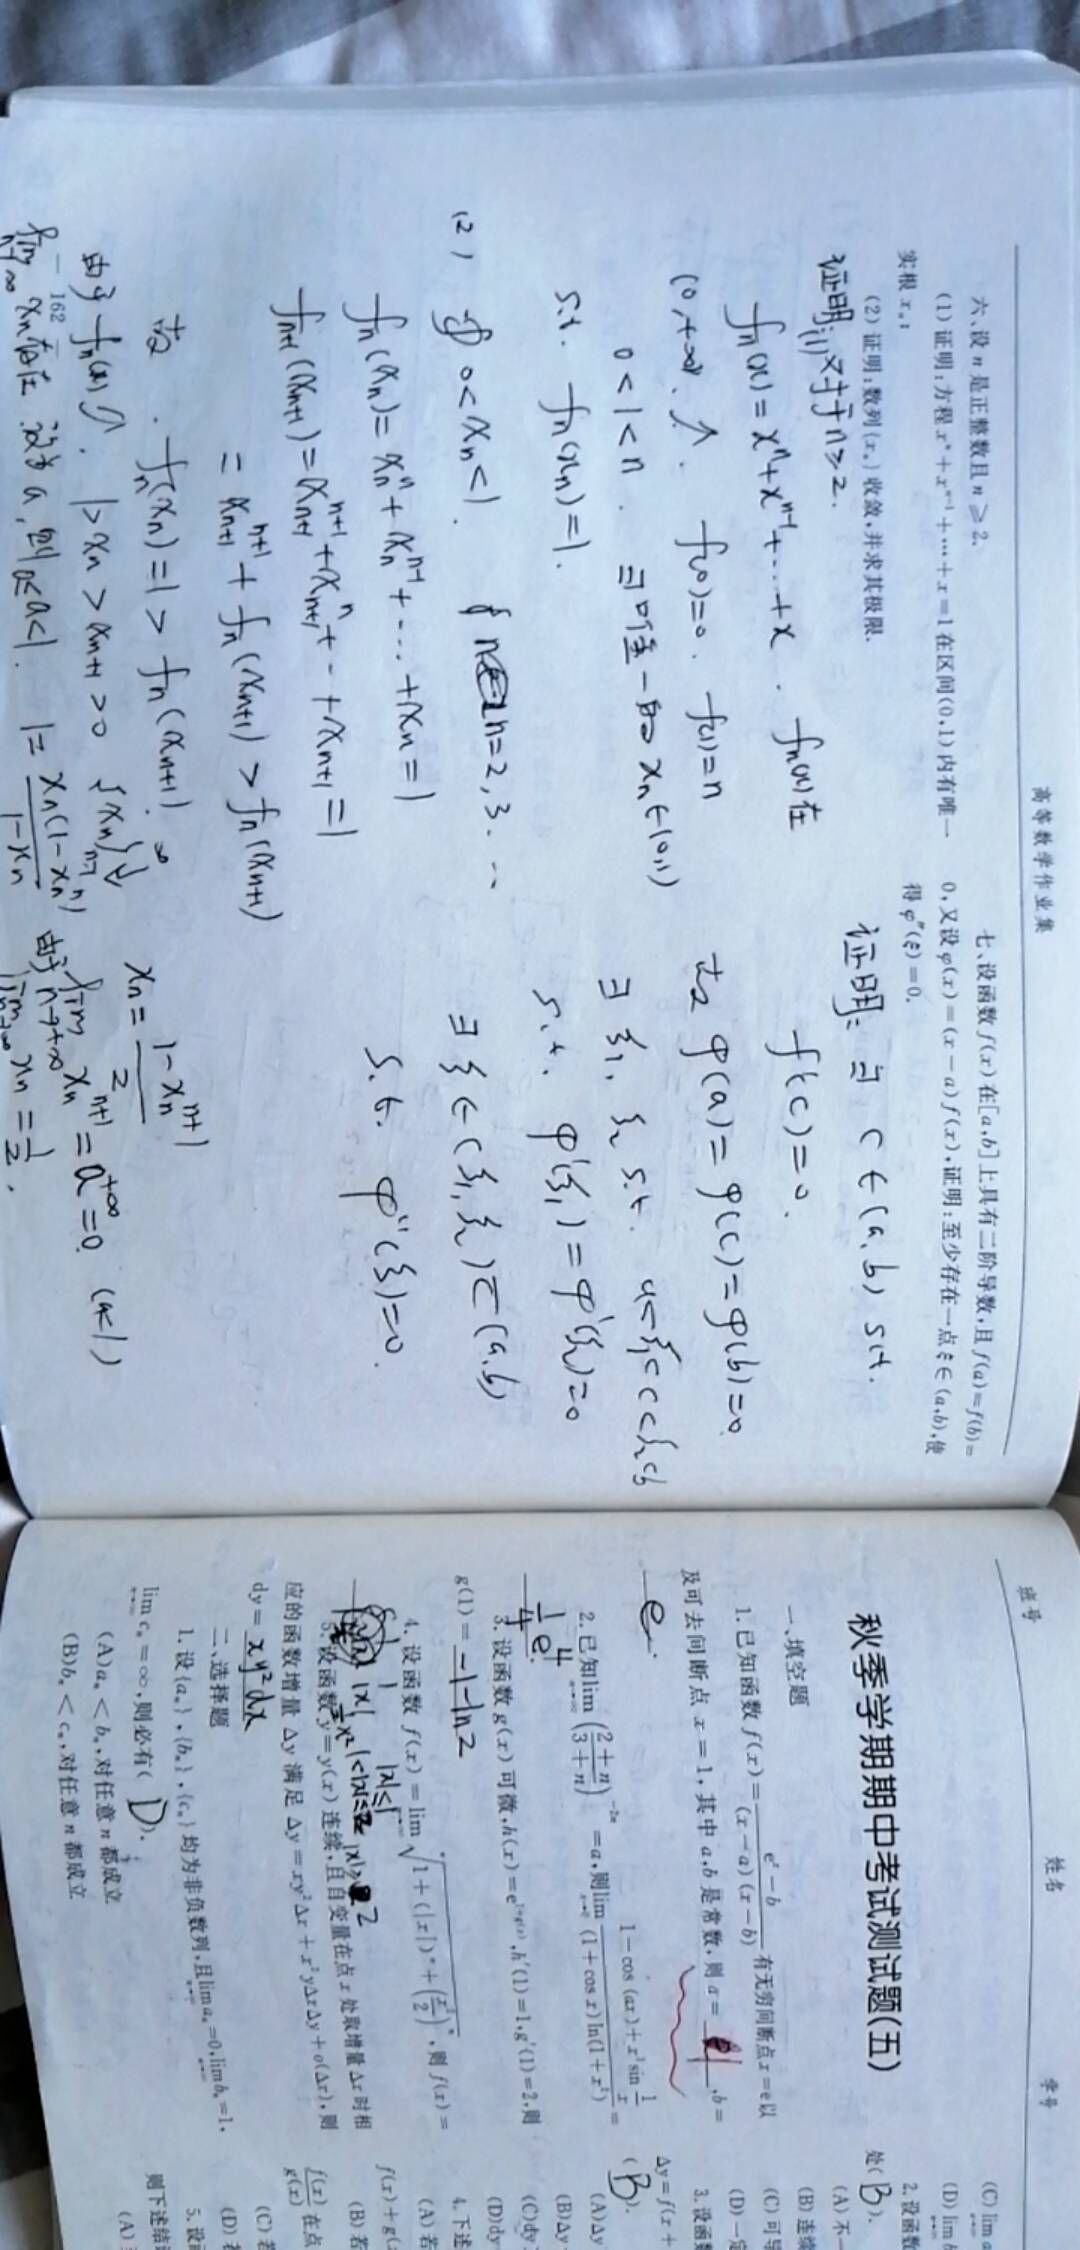 高等数学作业集
六、设 n 是正整数且 n ≥ 2.
(1) 证明:方程 xⁿ + xⁿ⁻¹ + ⋯ + x = 1 在区间(0,1)内有唯一
实根 xₙ;
(2) 证明:数列{xₙ}收敛,并求其极限.
证明:(1) 对于 n≥2.
fₙ(x) = xⁿ + xⁿ⁻¹ + ⋯ + x . fₙ(x) 在
(0,+∞) ↗. f(0)=0. f(1)=n
0<1<n. ∃ 唯一的 xₙ∈(0,1)
s.t. fₙ(xₙ)=1.
(2) 0<xₙ<1. n=2,3,⋯
fₙ(xₙ) = xₙⁿ + xₙⁿ⁻¹ + ⋯ + xₙ = 1
fₙ₊₁(xₙ₊₁) = xₙ₊₁ⁿ⁺¹ + xₙ₊₁ⁿ + ⋯ + xₙ₊₁ = 1
= xₙ₊₁ⁿ⁺¹ + fₙ(xₙ₊₁) > fₙ(xₙ₊₁)
故. fₙ(xₙ) = 1 > fₙ(xₙ₊₁).
由于 fₙ(x)↗. 1>xₙ>xₙ₊₁>0 {xₙ}↓
lim n→∞ xₙ存在 设为 a, 则 0≤a<1. 1 = xₙ(1-xₙⁿ)/(1-xₙ)
xₙ = (1-xₙⁿ⁺¹)/2
由于 lim n→+∞ xₙⁿ⁺¹ = a⁺∞ = 0. (a<1)
lim n→∞ xₙ = 1/2.
— 162 —
七、设函数 f(x)在[a,b]上具有二阶导数,且 f(a)=f(b)=
0,又设 φ(x)=(x-a)f(x),证明:至少存在一点 ξ∈(a,b),使
得 φ″(ξ)=0.
证明: ∃ c∈(a,b) s.t.
f(c)=0.
故 φ(a)=φ(c)=φ(b)=0.
∃ ξ₁, ξ₂ s.t. a<ξ₁<c<ξ₂<b
s.t. φ'(ξ₁)=φ'(ξ₂)=0
∃ ξ∈(ξ₁,ξ₂)⊂(a,b)
s.t. φ″(ξ)=0.
班号
姓名
学号
秋季学期期中考试测试题(五)
一、填空题
1. 已知函数 f(x) = (eˣ-b)/((x-a)(x-b)) 有无穷间断点 x=e 以
及可去间断点 x=1,其中 a,b 是常数,则 a= , b=
e.
2. 已知 lim n→∞ ((2+n)/(3+n))⁻²ⁿ = a,则 lim x→0 (1-cos(ax)+x³sin(1/x))/((1+cos x)ln(1+x²)) =
1/4 e⁴.
3. 设函数 g(x) 可微,h(x)=e^(1+g(x)),h′(1)=1,g′(1)=2,则
g(1)= -1-ln2
4. 设函数 f(x) = lim n→∞ ⁿ√(1+(|x|)ⁿ+(x²/2)ⁿ),则 f(x)=
1 |x|≤1
|x| 1<|x|≤2
x²/2 |x|>2
5. 设函数 y=y(x) 连续,且自变量在点 x 处取增量 Δx 时相
应的函数增量 Δy 满足 Δy=xy²Δx+x²yΔxΔy+o(Δx),则
dy= xy²dx
二、选择题
1. 设{aₙ},{bₙ},{cₙ}均为非负数列,且 lim n→∞ aₙ=0,lim n→∞ bₙ=1,
lim n→∞ cₙ=∞,则必有( D ).
(A) aₙ<bₙ,对任意 n 都成立
(B) bₙ<cₙ,对任意 n 都成立
(C) lim
(D) lim
2. 设函数
处( B ).
(A) 不
(B) 连续
(C) 可导
(D) 一定
3. 设函数
Δy=f(x+
( B ).
(A) Δy
(B) Δy
(C) dy
(D) dy
4. 下述
(A) 若
f(x)+g(
(B) 若
f(x)/g(x) 在点
(C) 若
(D) 若
5. 设
则下述结
(A)